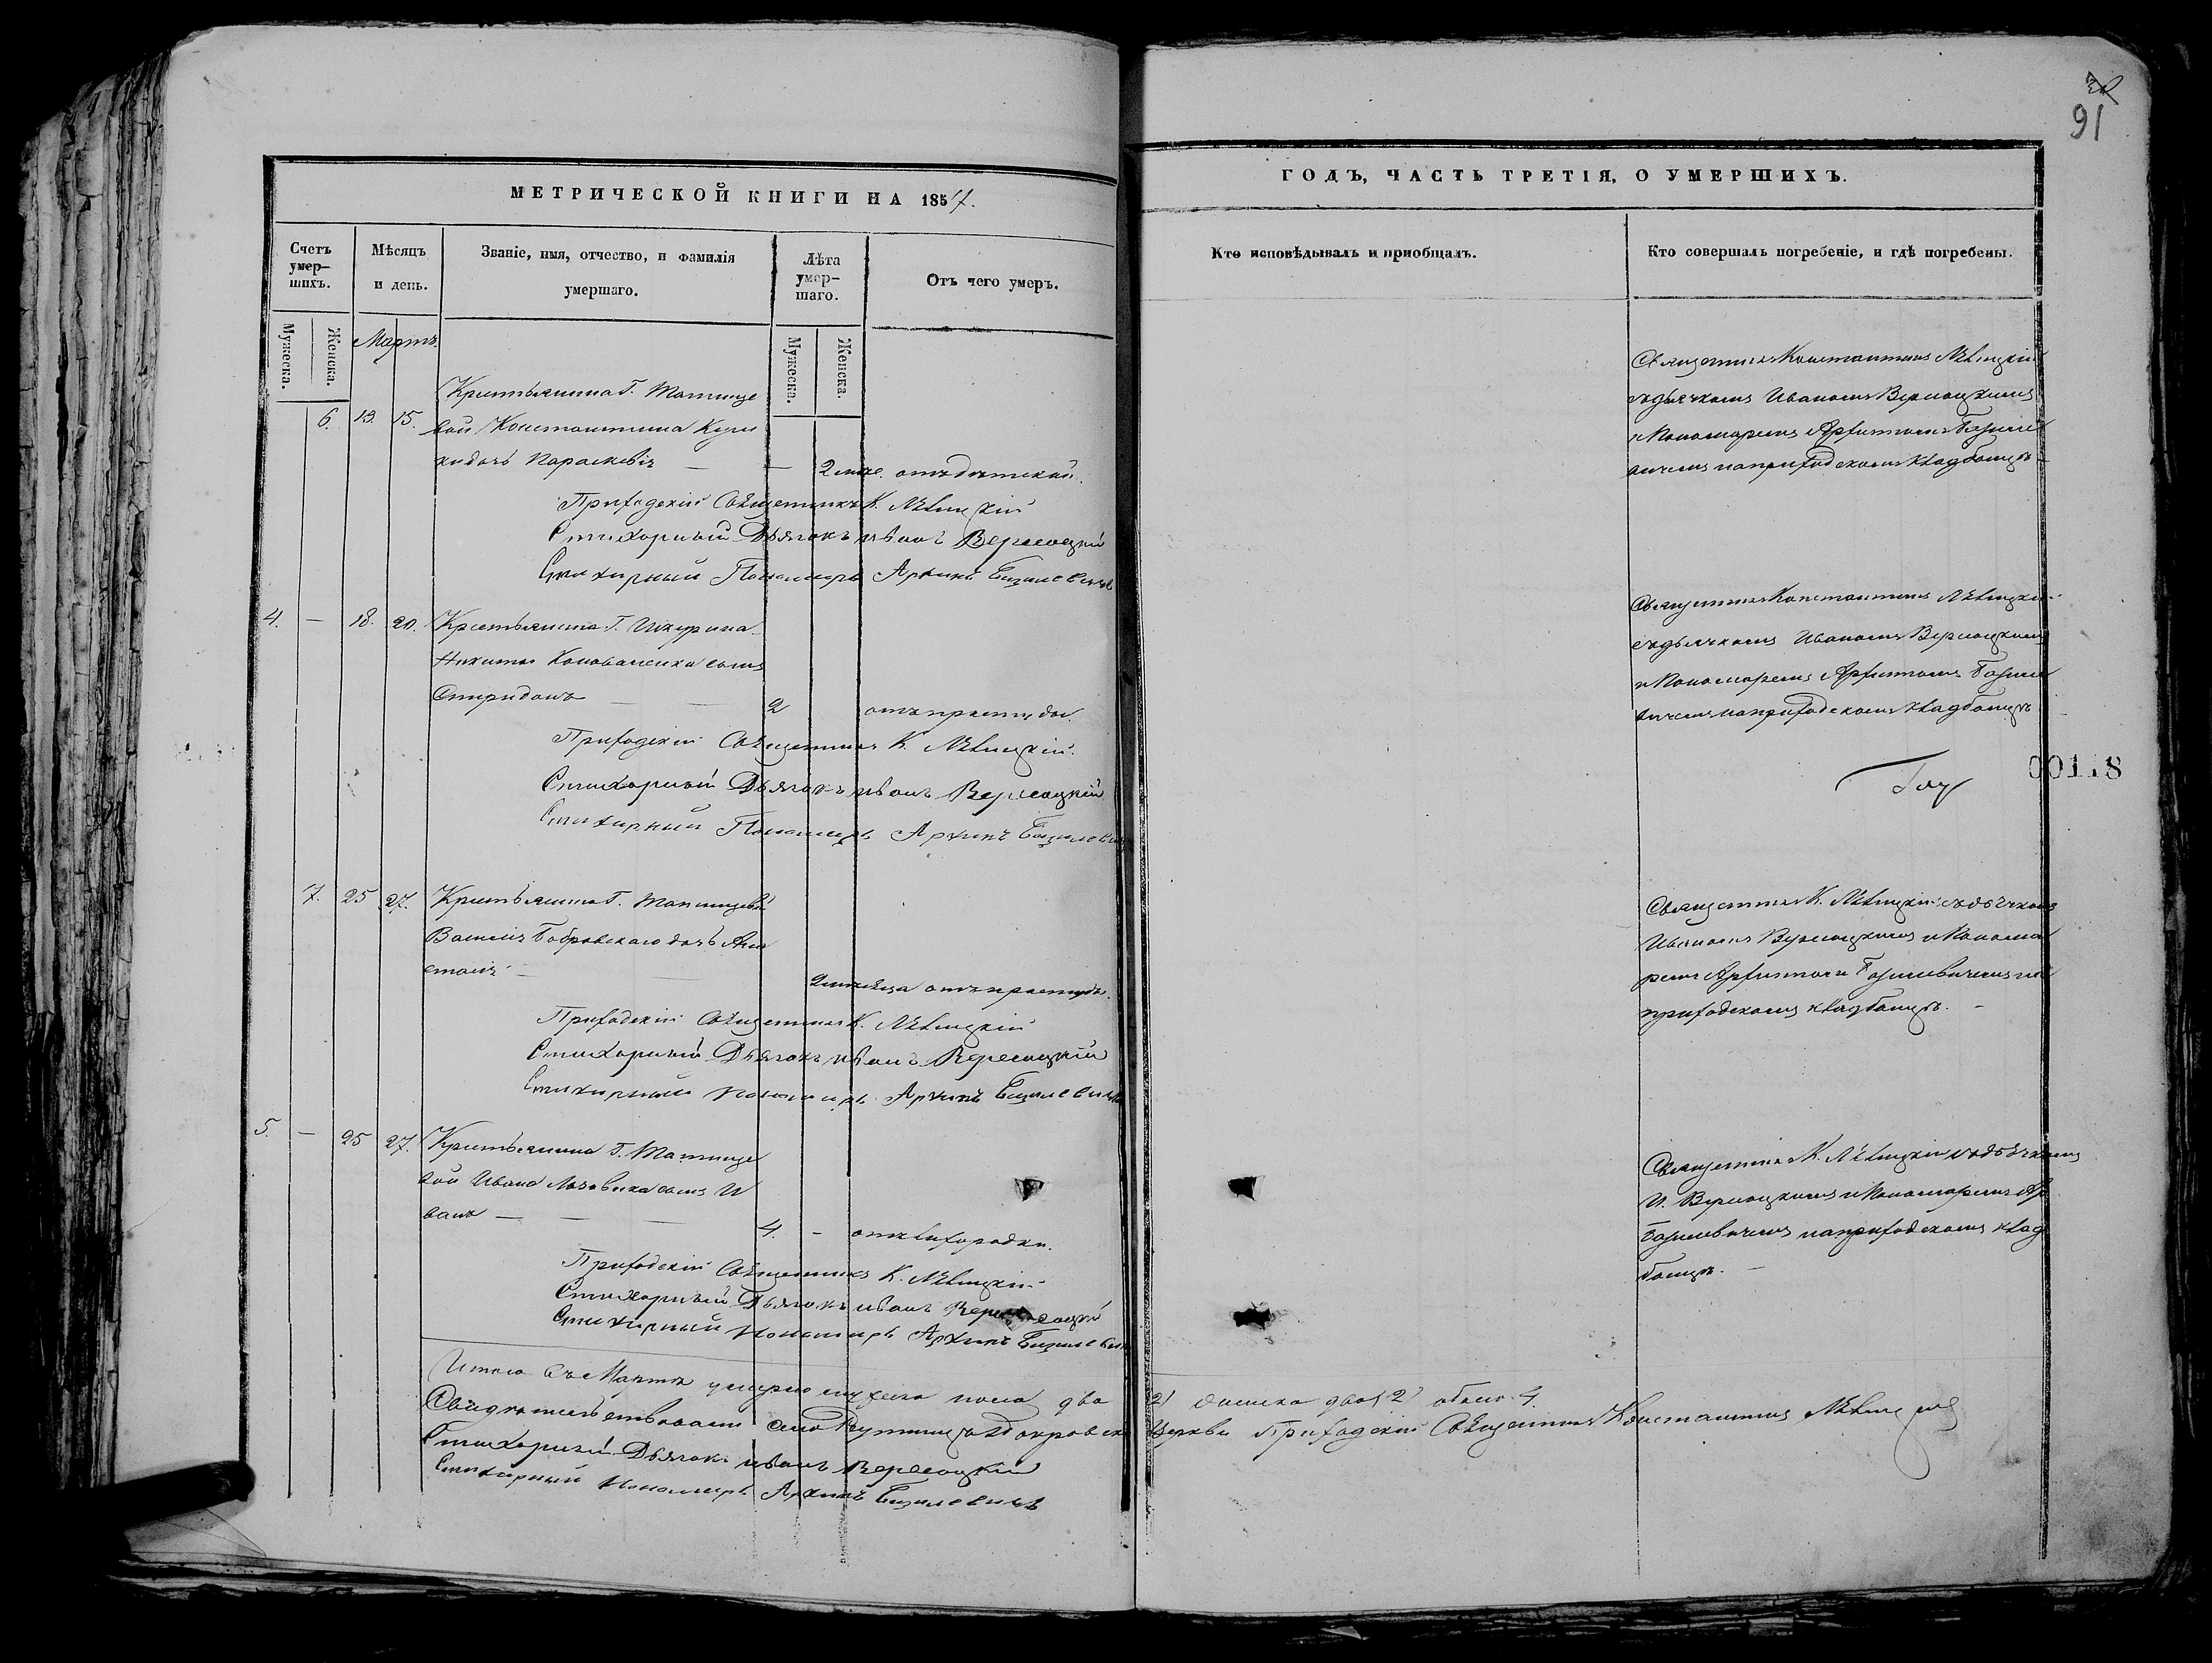 91
МЕТРИЧЕСКОЙ КНИГИ НА 1857.
ГОДЪ, ЧАСТЬ ТРЕТІЯ, О УМЕРШИХЪ.
Счетъ умер-шихъ.
Мѣсяцъ и день.
Званіе, имя, отчество, и фамилія умершаго.
Лѣта умер-шаго.
Отъ чего умеръ.
Кто исповѣдывалъ и пріобщалъ.
Кто совершалъ погребеніе, и гдѣ погребены.
Мужеска.
Женска.
Мартъ.
Мужеска.
Женска.
Крестьянина Г. Татище
6. 13. 15. вой Константина
дочь Параскевія — — 2 отъ дѣтской.
Приходскій Священникъ К. Лѣвицкій
Стихарный Дьячокъ Иванъ Вересоцкій
Стихарный Пономарь Архипъ Базилевичъ
Священникъ Константинъ Лѣвицкій
съ дьячкомъ Иваномъ Вересоцкимъ
и Пономаремъ Архипомъ Базиле
вичемъ на приходскомъ кладбищѣ —
4. — 18. 20. Крестьянина Г.
Никиты Коноваленка сынъ
Спиридонъ — — 2
Приходскій Священникъ К. Лѣвицкій.
Стихарный Дьячокъ Иванъ Вересоцкій
Стихарный Пономарь Архипъ Базилевичъ
Священникъ Константинъ Лѣвицкій
съ дьячкомъ Иваномъ Вересоцкимъ
и Пономаремъ Архипомъ Базиле
вичемъ на приходскомъ кладбищѣ
00118
7. 25 27. Крестьянина Г. Татищевой
Василія Бобровскаго дочь Ана
стасія — — 2 мѣсяца
Приходскій Священникъ К. Лѣвицкій
Стихарный Дьячокъ Иванъ Вересоцкій
Стихарный Пономарь Архипъ Базилевичъ
Священникъ К. Лѣвицкій съ дьячкомъ
Иваномъ Вересоцкимъ и Понома
ремъ Архипомъ Базилевичемъ на
приходскомъ кладбищѣ. —
5. — 25 27. Крестьянина Г. Татище
вой Ивана сынъ И
ванъ — — — 4. — отъ лихорадки.
Приходскій Священникъ К. Лѣвицкій
Стихарный Дьячокъ Иванъ Вересоцкій
Стихарный Пономарь Архипъ Базилевичъ
Священникъ К. Лѣвицкій съ дьячкомъ
И. Вересоцкимъ и Пономаремъ Ар.
Базилевичемъ на приходскомъ клад
бищѣ. —
Итого въ Мартѣ умерло мужеска пола два 2) женска два (2) обоего 4.
Свидѣтельствовали села Покровской Церкви Приходскій Священникъ Константинъ Лѣвицкій
Стихарный Дьячокъ Иванъ Вересоцкій
Стихарный Пономарь Архипъ Базилевичъ